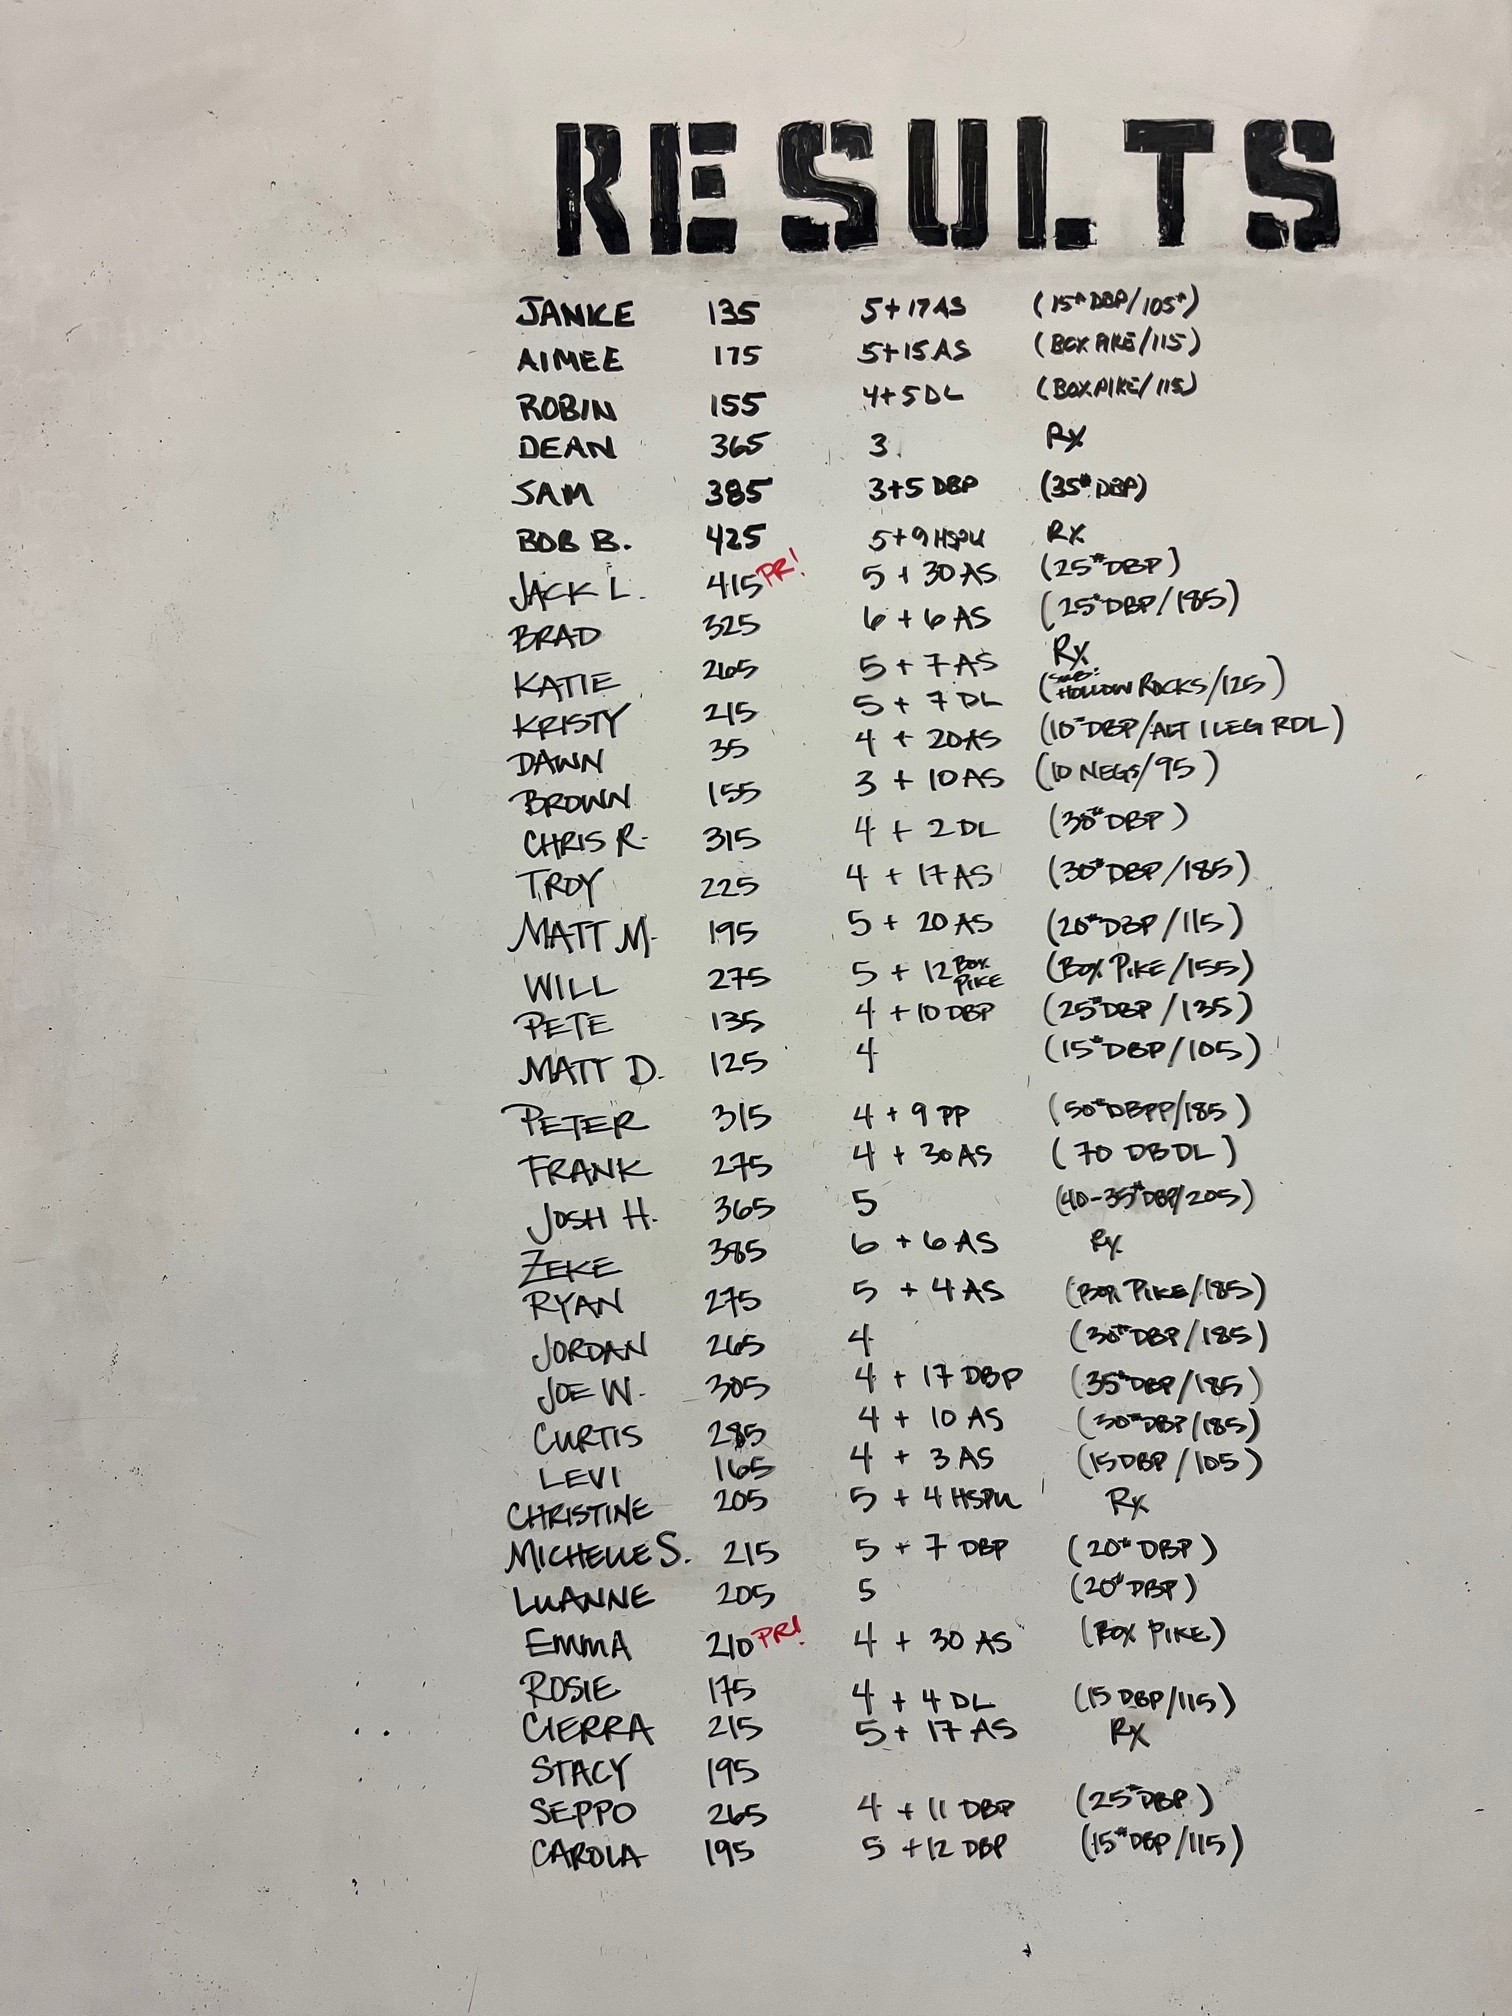 RESULTS
JANICE 135 5+17 AS (15# DBP/105#)
AIMEE 175 5+15 AS (BOX PIKE/115)
ROBIN 155 4+5 DL (BOX PIKE/115)
DEAN 365 3 Rx
SAM 385 3+5 DBP (35# DBP)
BOB B. 425 5+9 HSPU Rx
JACK L. 415 PR! 5 + 30 AS (25# DBP)
BRAD 325 6 + 6 AS (25# DBP/185)
KATIE 265 5 + 7 AS Rx
KRISTY 215 5 + 7 DL (SUB: HOLLOW ROCKS/125)
DAWN 35 4 + 20 AS (10# DBP/ALT 1 LEG RDL)
BROWN 155 3 + 10 AS (10 NEGS/95)
CHRIS R. 315 4 + 2 DL (30# DBP)
TROY 225 4 + 17 AS (30# DBP/185)
MATT M. 195 5 + 20 AS (20# DBP/115)
WILL 275 5 + 12 BOX PIKE (BOX PIKE/155)
PETE 135 4 + 10 DBP (25# DBP/135)
MATT D. 125 4 (15# DBP/105)
PETER 315 4 + 9 PP (50# DBPP/185)
FRANK 275 4 + 30 AS (70 DBDL)
JOSH H. 365 5 (40-35# DBP/205)
ZEKE 385 6 + 6 AS Rx
RYAN 275 5 + 4 AS (BOX PIKE/185)
JORDAN 265 4 (30# DBP/185)
JOE W. 305 4 + 17 DBP (35# DBP/185)
CURTIS 285 4 + 10 AS (30# DBP/185)
LEVI 165 4 + 3 AS (15 DBP/105)
CHRISTINE 205 5 + 4 HSPU Rx
MICHELLE S. 215 5 + 7 DBP (20# DBP)
LUANNE 205 5 (20# DBP)
EMMA 210 PR! 4 + 30 AS (BOX PIKE)
ROSIE 175 4 + 4 DL (15 DBP/115)
CIERRA 215 5 + 17 AS Rx
STACY 195
SEPPO 265 4 + 11 DBP (25# DBP)
CAROLA 195 5 + 12 DBP (15# DBP/115)